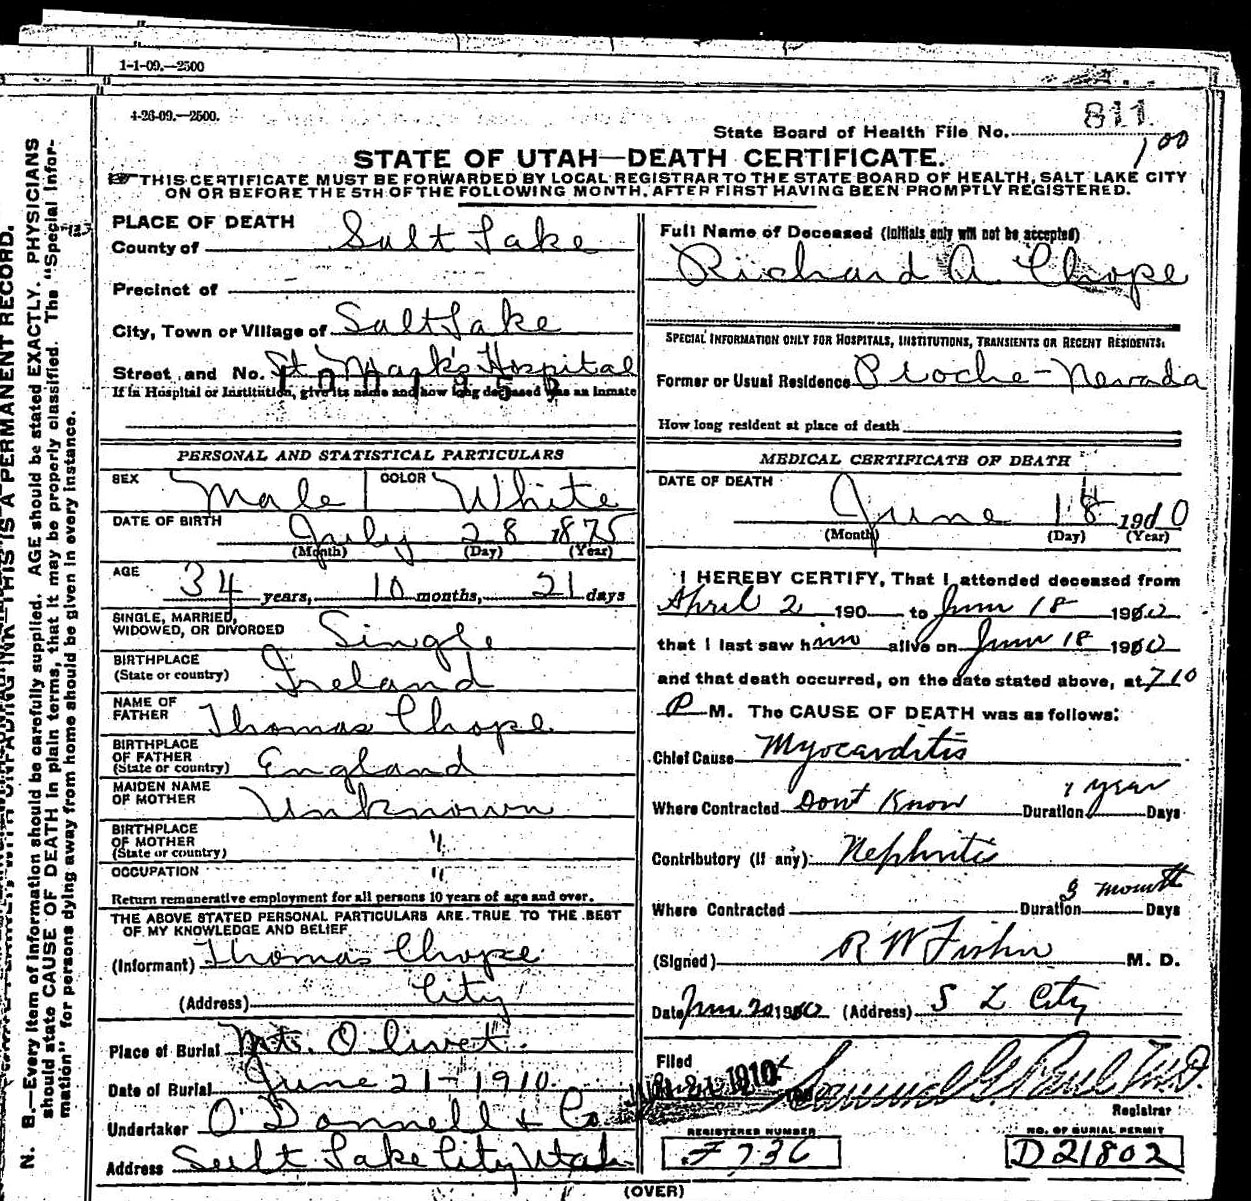 1-1-09.—2500
4-26-09.—2500.
811
State Board of Health File No.
1 00
STATE OF UTAH—DEATH CERTIFICATE.
THIS CERTIFICATE MUST BE FORWARDED BY LOCAL REGISTRAR TO THE STATE BOARD OF HEALTH, SALT LAKE CITY
ON OR BEFORE THE 5TH OF THE FOLLOWING MONTH, AFTER FIRST HAVING BEEN PROMPTLY REGISTERED.
N. B.—Every item of information should be carefully supplied. AGE should be stated EXACTLY. PHYSICIANS
should state CAUSE OF DEATH in plain terms, that it may be properly classified. The "Special Infor-
mation" for persons dying away from home should be given in every instance.
THIS IS A PERMANENT RECORD.
PLACE OF DEATH
County of Salt Lake
Precinct of
City, Town or Village of Salt Lake
Street and No. St. Mark's Hospital
If in Hospital or Institution, give its name and how long deceased was an inmate
PERSONAL AND STATISTICAL PARTICULARS
SEX Male COLOR White
DATE OF BIRTH July 28 1875
(Month) (Day) (Year)
AGE 34 years, 10 months, 21 days
SINGLE, MARRIED,
WIDOWED, OR DIVORCED Single
BIRTHPLACE
(State or country) Ireland
NAME OF
FATHER Thomas Chope
BIRTHPLACE
OF FATHER
(State or country) England
MAIDEN NAME
OF MOTHER Unknown
BIRTHPLACE
OF MOTHER
(State or country) "
OCCUPATION "
Return remunerative employment for all persons 10 years of age and over.
THE ABOVE STATED PERSONAL PARTICULARS ARE TRUE TO THE BEST
OF MY KNOWLEDGE AND BELIEF
(Informant) Thomas Chope
(Address) City
Place of Burial Mt. Olivet
Date of Burial June 21-1910.
Undertaker O'Donnell & Co
Address Salt Lake City Utah
Full Name of Deceased (Initials only will not be accepted)
Richard A Chope
SPECIAL INFORMATION ONLY FOR HOSPITALS, INSTITUTIONS, TRANSIENTS OR RECENT RESIDENTS.
Former or Usual Residence Pioche-Nevada
How long resident at place of death
MEDICAL CERTIFICATE OF DEATH
DATE OF DEATH
June 18 1910
(Month) (Day) (Year)
I HEREBY CERTIFY, That I attended deceased from
April 2 190 to June 18 1910
that I last saw him alive on June 18 1910
and that death occurred, on the date stated above, at 710
P M. The CAUSE OF DEATH was as follows:
Chief Cause Myocarditis
1 year
Where Contracted Don't Know Duration Days
Contributory (if any) Nephritis
3 month
Where Contracted Duration Days
(Signed) R W Fisher M. D.
Date June 20 1910 (Address) S L City
Filed JUN 21 1910 Samuel G. Paul M.D.
Registrar
REGISTERED NUMBER
F 736
NO. OF BURIAL PERMIT
D21802
(OVER)